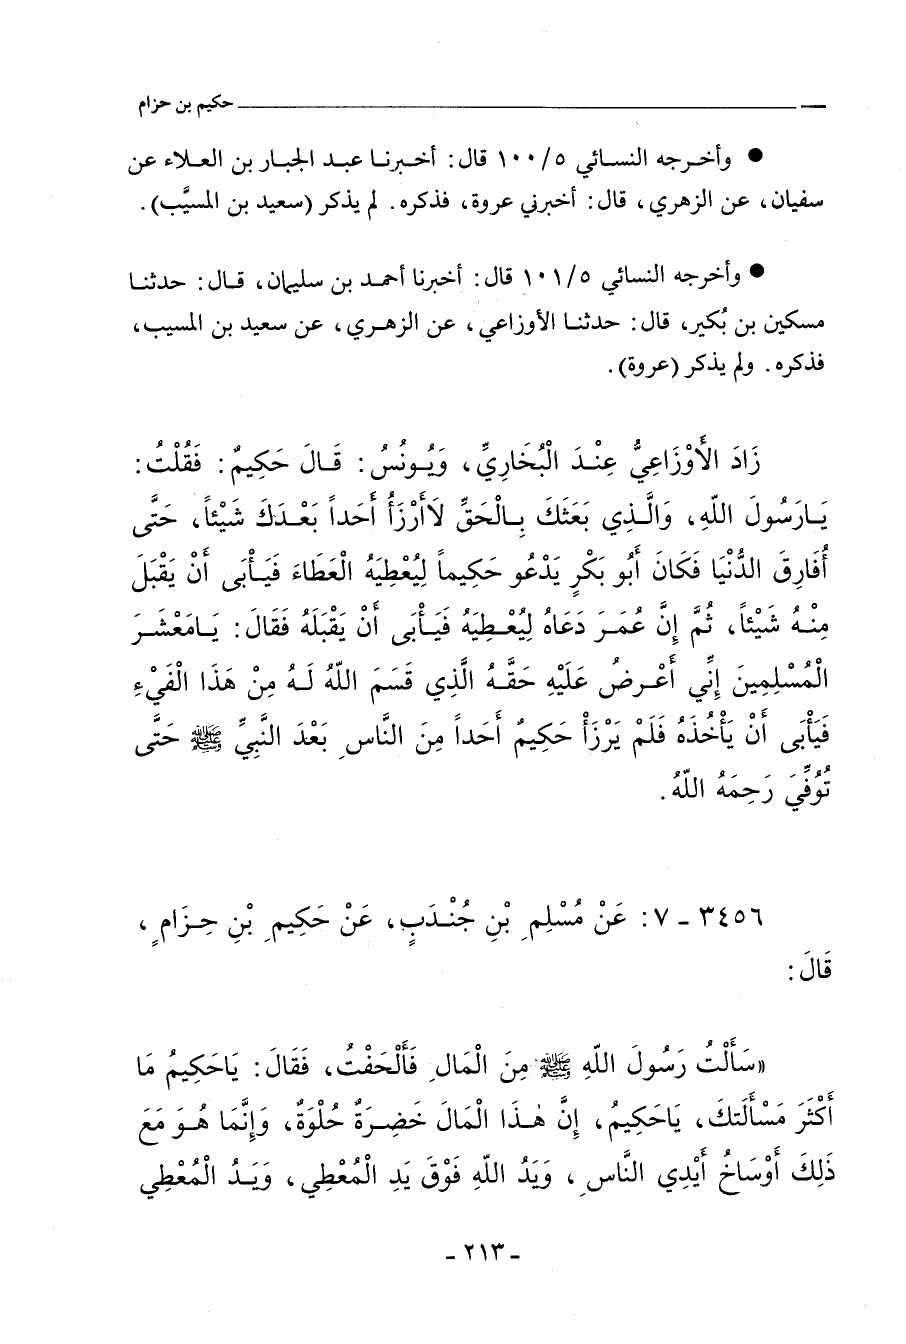 حكيم بن حزام
● وأخرجه النسائي ١٠٠/٥ قال: أخبرنا عبد الجبار بن العلاء عن
سفيان، عن الزهري، قال: أخبرني عروة، فذكره. لم يذكر (سعيد بن المسيَّب).
● وأخرجه النسائي ١٠١/٥ قال: أخبرنا أحمد بن سليمان، قال: حدثنا
مسكين بن بُكير، قال: حدثنا الأوزاعي، عن الزهري، عن سعيد بن المسيب،
فذكره. ولم يذكر (عروة).
زَادَ الأَوْزَاعِيُّ عِنْدَ الْبُخَارِيِّ، وَيُونُسُ: قَالَ حَكِيمٌ: فَقُلْتُ:
يَارَسُولَ اللّهِ، وَالَّذِي بَعَثَكَ بِالْحَقِّ لاَأَرْزَأُ أَحَداً بَعْدَكَ شَيْئاً، حَتَّى
أُفَارِقَ الدُّنْيَا فَكَانَ أَبُو بَكْرٍ يَدْعُو حَكِيماً لِيُعْطِيَهُ الْعَطَاءَ فَيَأْبَى أَنْ يَقْبَلَ
مِنْهُ شَيْئاً، ثُمَّ إِنَّ عُمَرَ دَعَاهُ لِيُعْطِيَهُ فَيَأْبَى أَنْ يَقْبَلَهُ فَقَالَ: يَامَعْشَرَ
الْمُسْلِمِينَ إِنِّي أَعْرِضُ عَلَيْهِ حَقَّهُ الَّذِي قَسَمَ اللّهُ لَهُ مِنْ هَذَا الْفَيْءِ
فَيَأْبَى أَنْ يَأْخُذَهُ فَلَمْ يَرْزَأْ حَكِيمٌ أَحَداً مِنَ النَّاسِ بَعْدَ النَّبِيِّ ﷺ حَتَّى
تُوُفِّيَ رَحِمَهُ اللّهُ.
٣٤٥٦ - ٧: عَنْ مُسْلِمِ بْنِ جُنْدَبٍ، عَنْ حَكِيمِ بْنِ حِزَامٍ،
قَالَ:
«سَأَلْتُ رَسُولَ اللّهِ ﷺ مِنَ الْمَالِ فَأَلْحَفْتُ، فَقَالَ: يَاحَكِيمُ مَا
أَكْثَرَ مَسْأَلَتَكَ، يَاحَكِيمُ، إِنَّ هٰذَا الْمَالَ خَضِرَةٌ حُلْوَةٌ، وَإِنَّمَا هُوَ مَعَ
ذَلِكَ أَوْسَاخُ أَيْدِي النَّاسِ، وَيَدُ اللّهِ فَوْقَ يَدِ الْمُعْطِي، وَيَدُ الْمُعْطِي
- ٢١٣ -